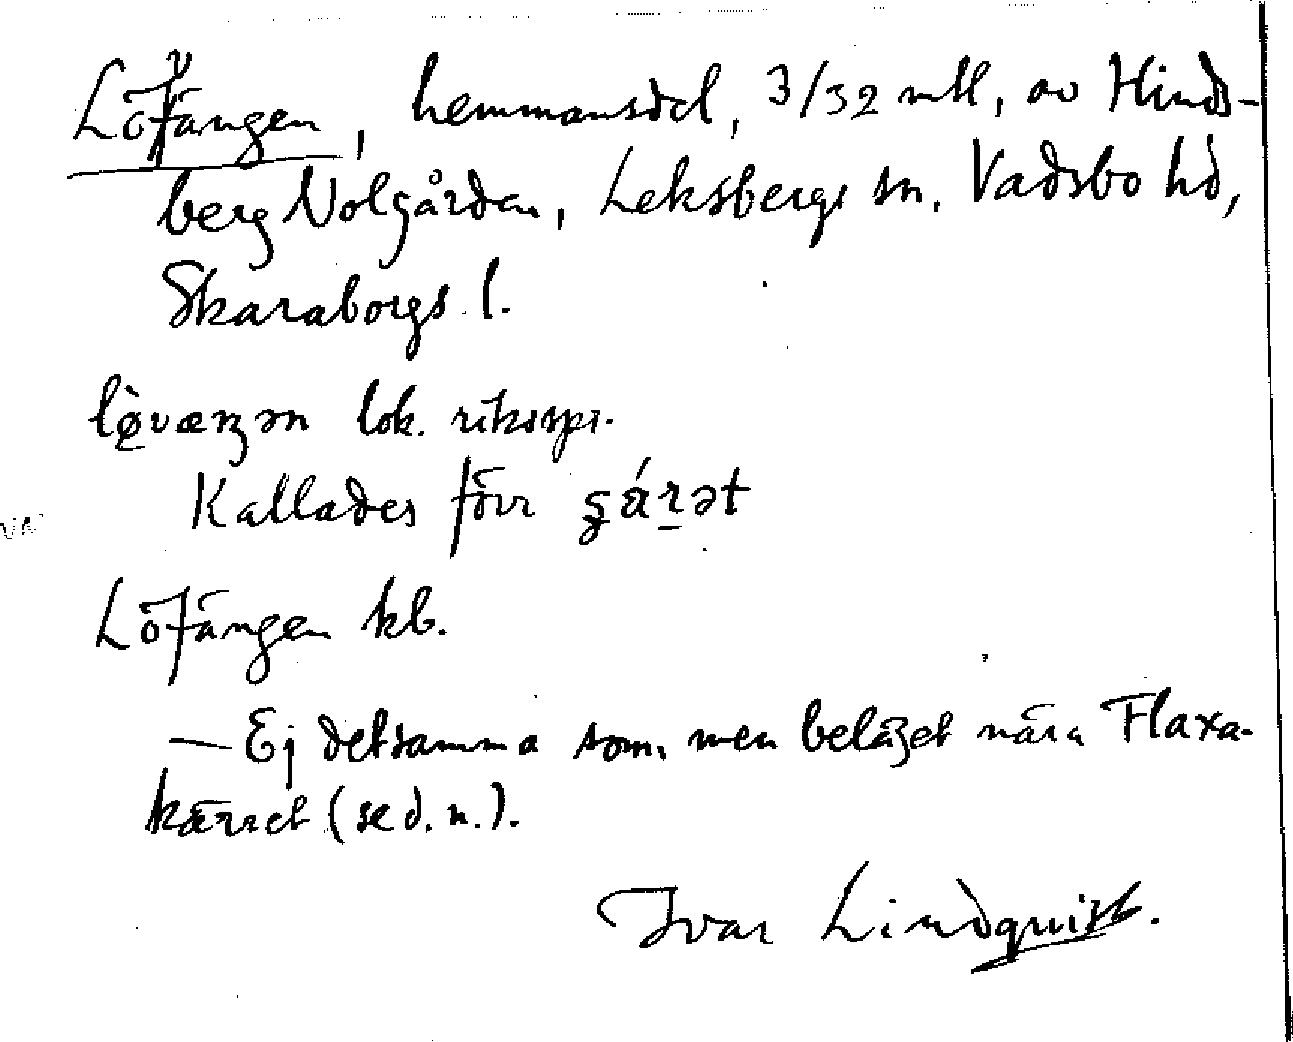 Lövängen, hemmansdel, 3/32 mtl, av Hinds-
berg Nolgården, Leksbergs sn, Vadsbo hd,
Skaraborgs l.
lø̀væŋən lok. riksspr.
Kallades förr gárət
Löfängen kb.
— Ej detsamma som, men beläget nära Flaxa-
kärret (se d. n.).
Ivar Lindquist.